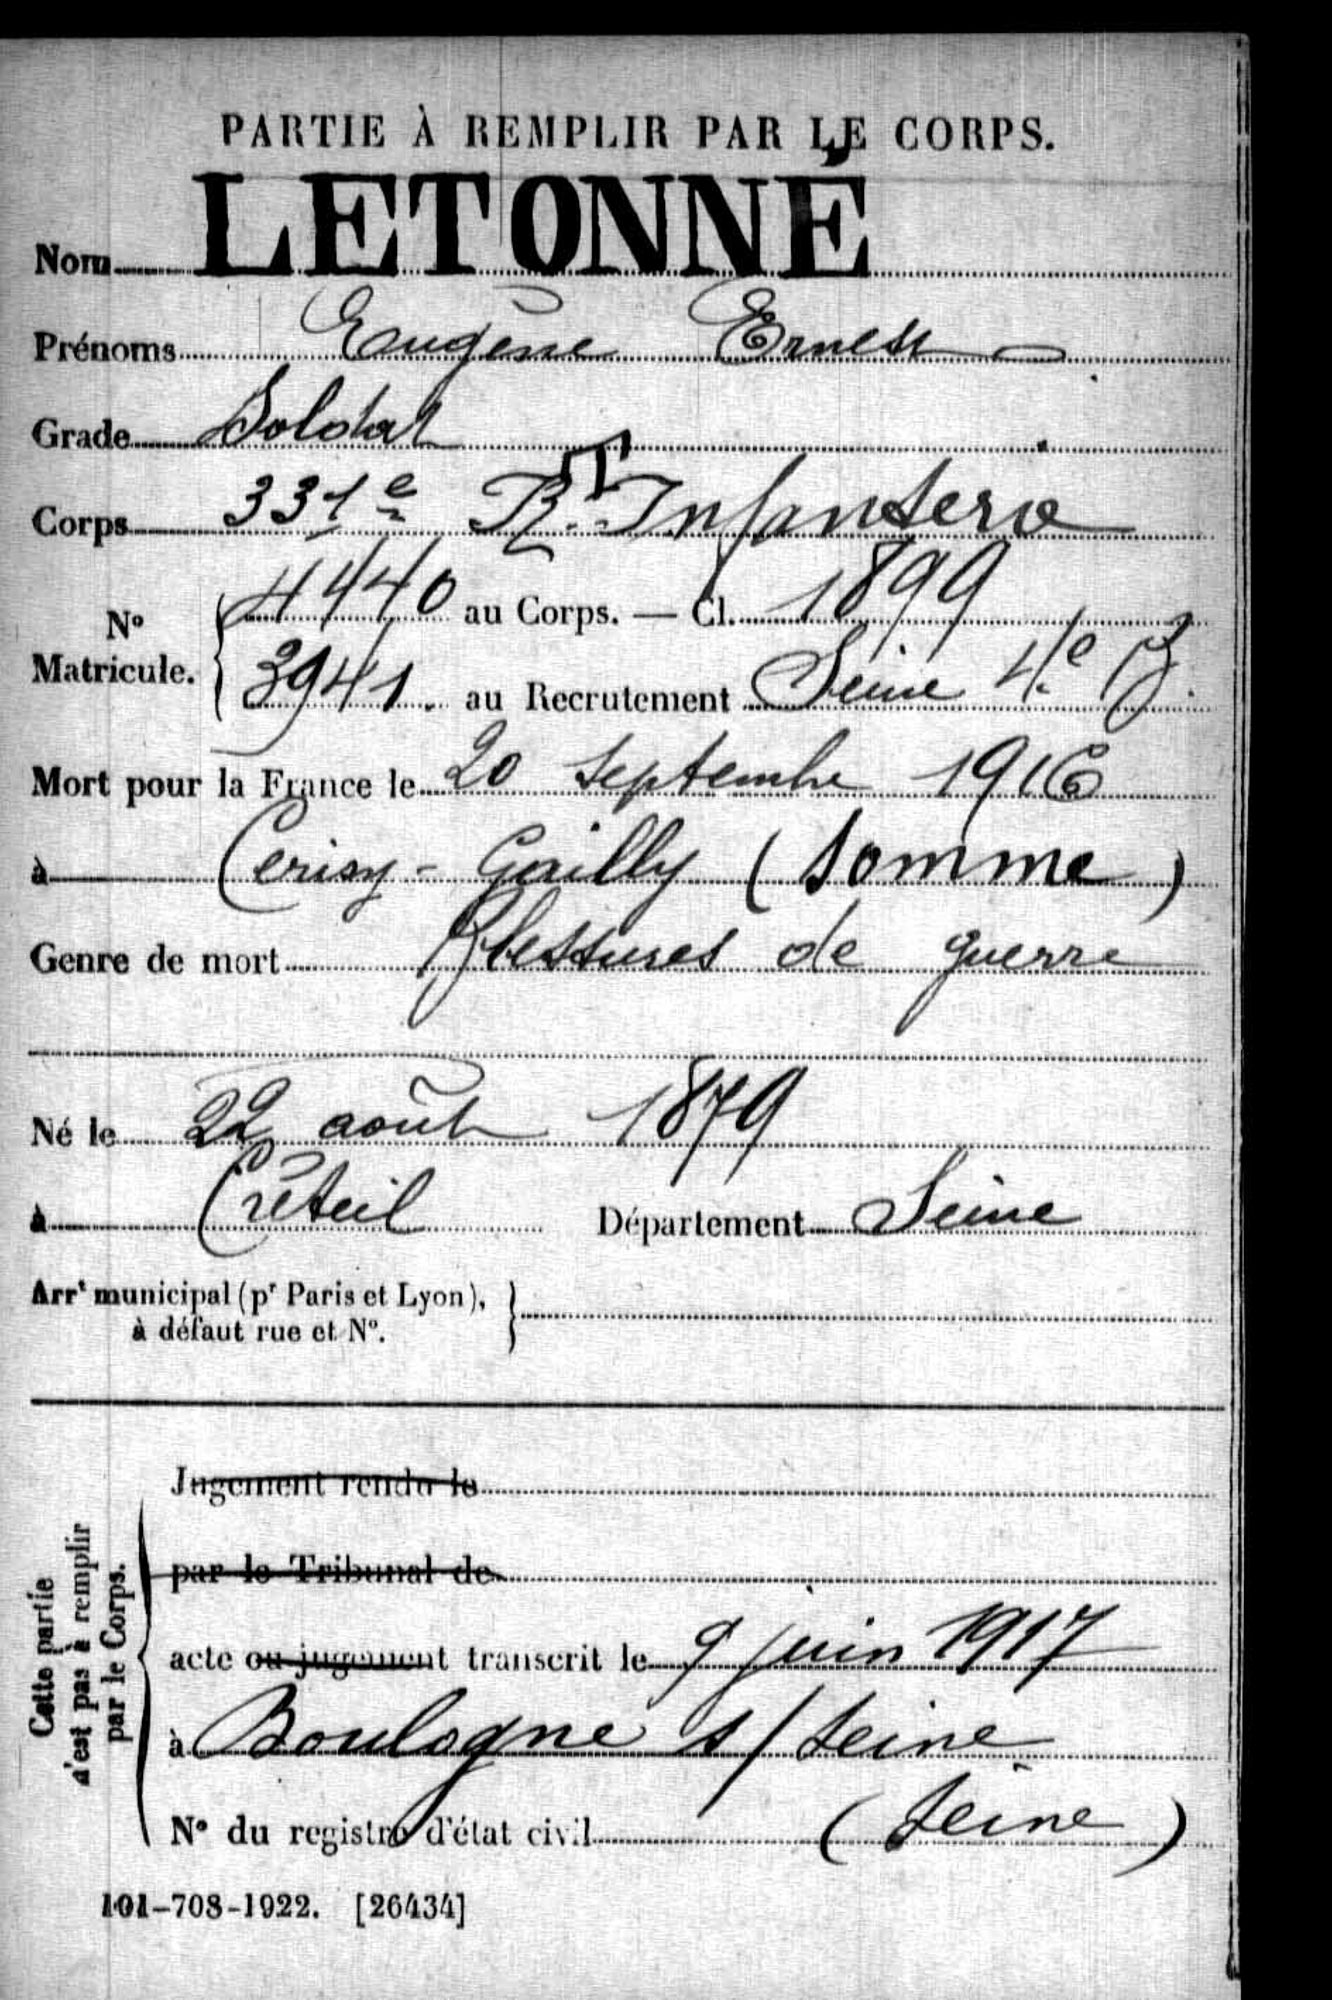 PARTIE À REMPLIR PAR LE CORPS.
Nom LETONNÉ
Prénoms Eugène Ernest
Grade Soldat
Corps 331e Rt Infanterie
N° Matricule. 4440 au Corps. — Cl. 1899
3941 au Recrutement Seine 4e B.
Mort pour la France le 20 septembre 1916
à Cerisy-Gailly (Somme)
Genre de mort Blessures de guerre
Né le 22 août 1879
à Créteil Département Seine
Arrt municipal (pr Paris et Lyon),
à défaut rue et N°.
Cette partie
n'est pas à remplir
par le Corps.
Jugement rendu le
par le Tribunal de
acte ou jugement transcrit le 9 juin 1917
à Boulogne s/Seine
N° du registre d'état civil (Seine)
101-708-1922. [26434]